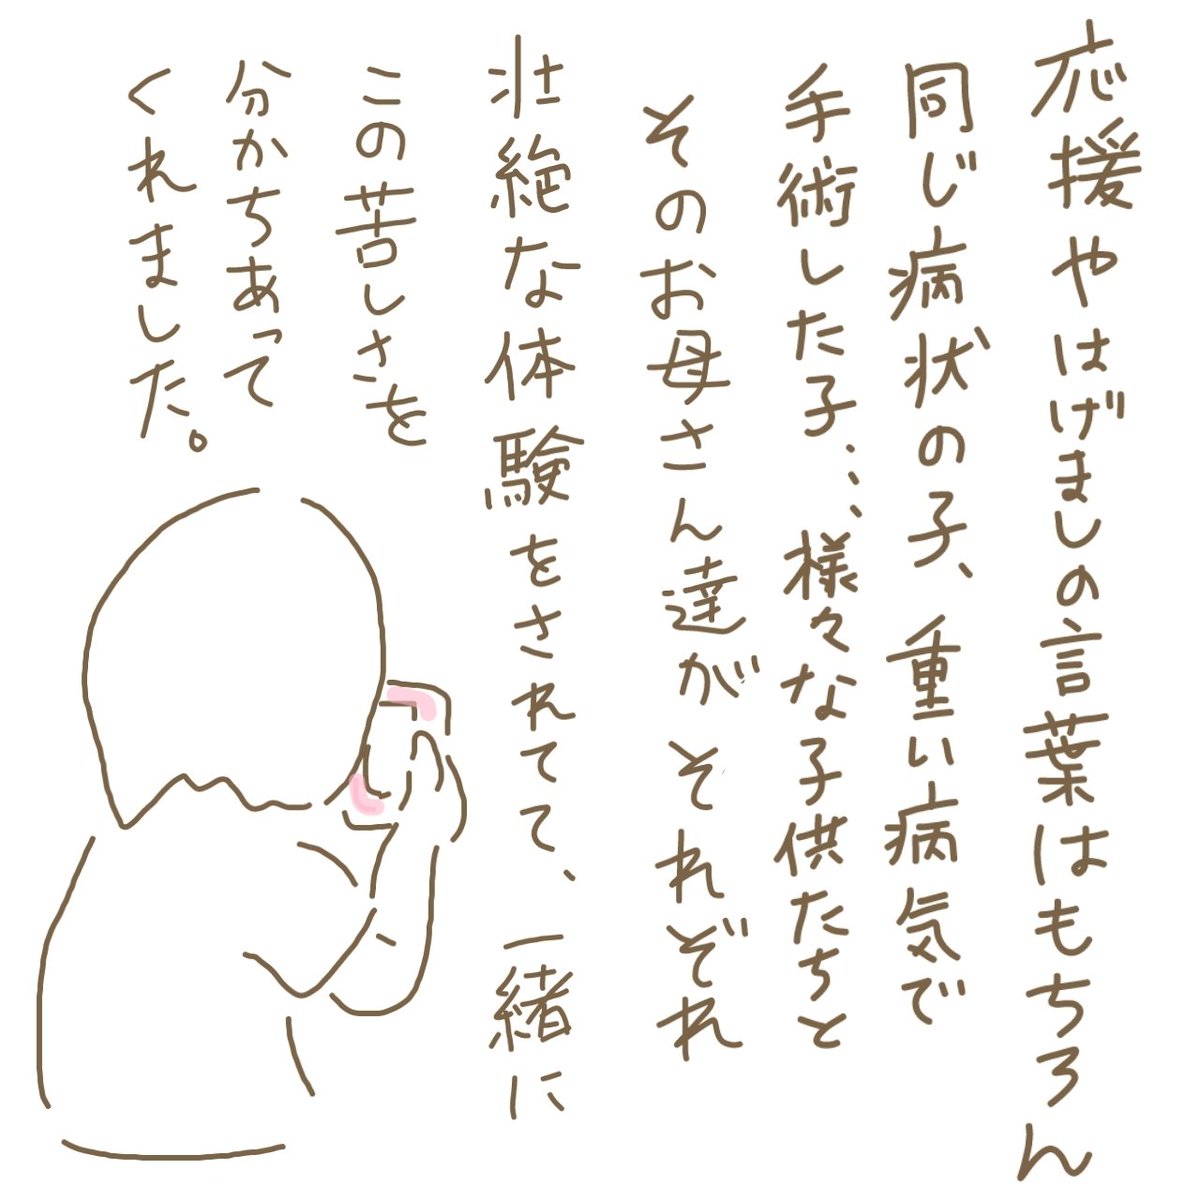 応援やはげましの言葉はもちろん
同じ病状の子、重い病気で
手術した子…、様々な子供たちと
そのお母さん達がそれぞれ
壮絶な体験をされてて、一緒に
この苦しさを
分かちあって
くれました。